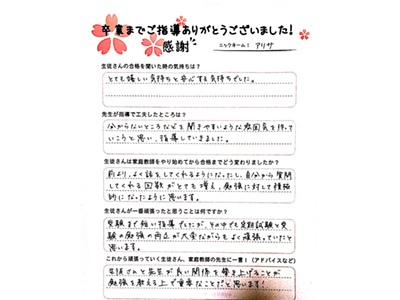 卒業までご指導ありがとうございました!
感謝
ニックネーム! アリサ
生徒さんの合格を聞いた時の気持ちは?
とても嬉しい気持ちと安心する気持ちでした。
先生が指導で工夫したところは?
分からないところなどを聞きやすいような雰囲気を作って
いこうと思い、指導していきました。
生徒さんは家庭教師をやり始めてから合格までどう変わりましたか?
前より、よく話をしてくれるようになったし、自分から質問
してくれる回数がとても増え、勉強に対して積極
的になったように思います。
生徒さんが一番頑張ったと思うことは何ですか?
受験まで短い指導でしたが、その中でも定期試験と受
験の勉強の両立が大変ながらもよく頑張っていたと
思います。
これから頑張っていく生徒さん、家庭教師の先生に一言!(アドバイスなど)
生徒さんと先生が良い関係を築き上げることが
勉強を教える上で重要なことだと思います!